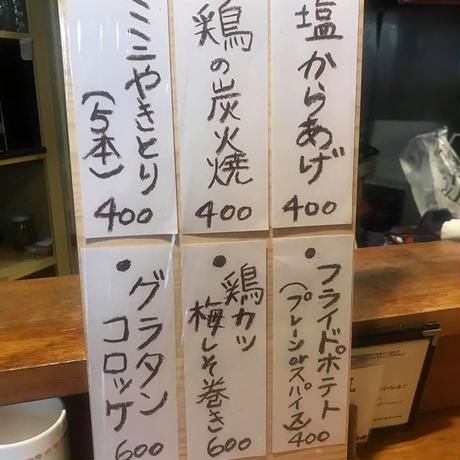 塩からあげ
400
鶏の炭火焼
400
ミニやきとり
(5本)
400
フライドポテト
(プレーンorスパイス)
400
鶏カツ
梅しそ巻き
600
グラタン
コロッケ
600